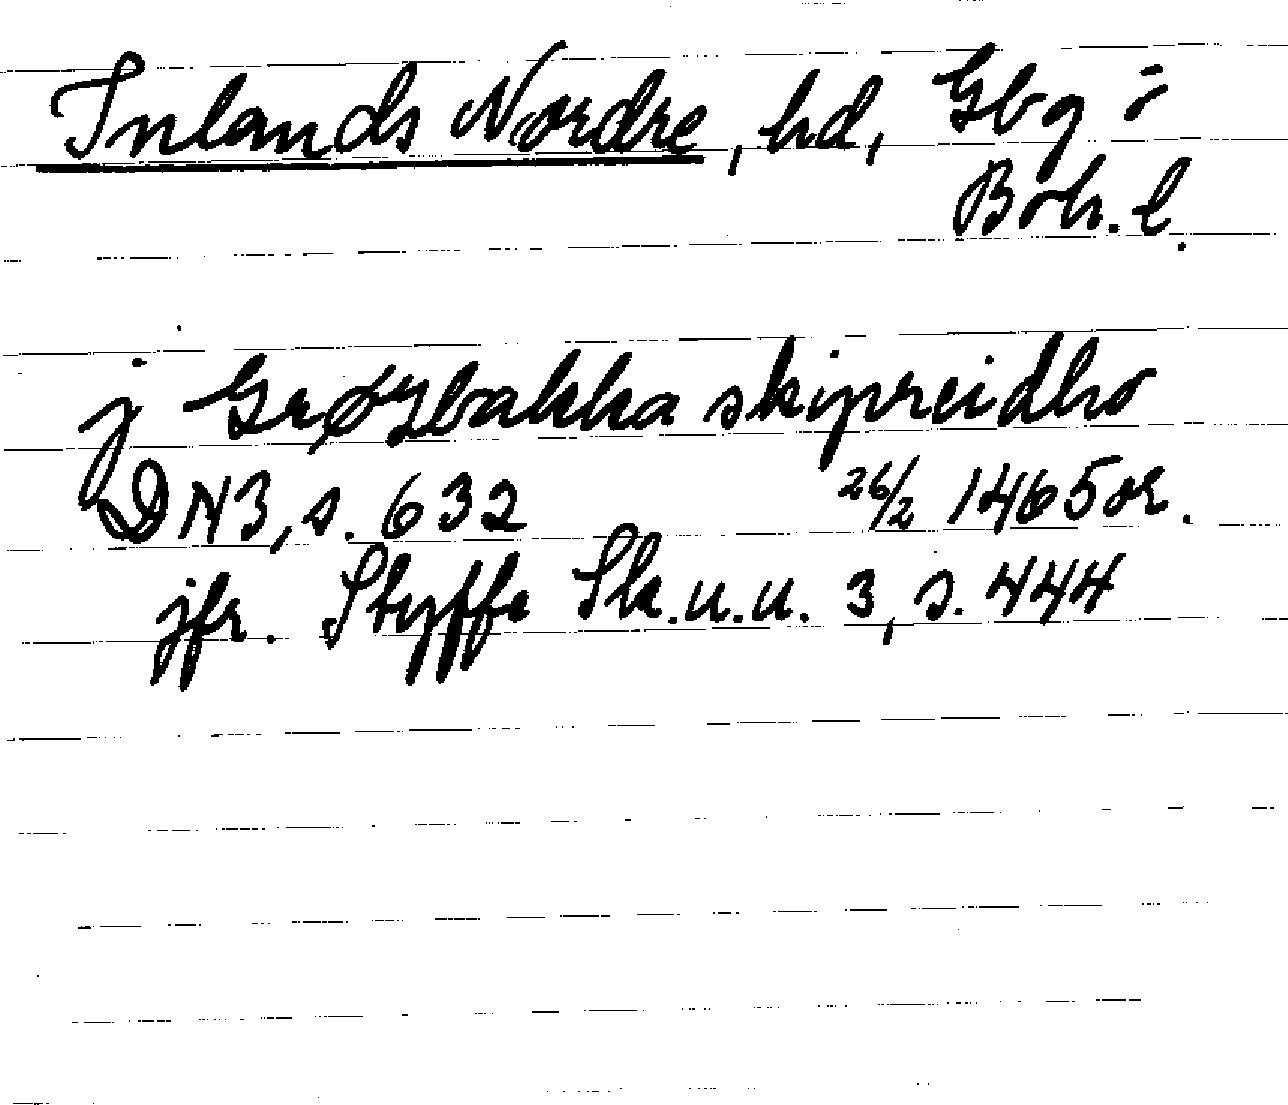 Inlands Nordre, hd, Gbg o
Boh. l.
j Grøzbakka skipreidho
DN3, s. 632 26/2 1465 or.
jfr. Styffe Sk.u.u. 3, s. 444